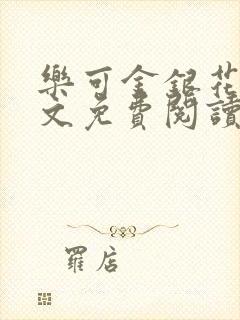 樂可金銀花
文免費閱讀
羅店